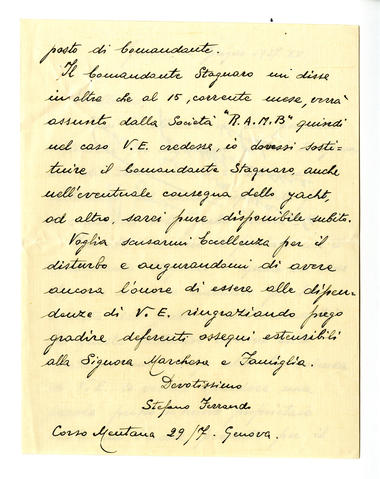 posto di Comandante.
Il Comandante Stagnaro mi disse
inoltre che al 15, corrente mese, verrà
assunto dalla Società "R.A.M.B" quindi
nel caso V.E. credesse, io dovessi sosti-
tuire il Comandante Stagnaro, anche
nell'eventuale consegna dello yacht,
ad altro, sarei pure disponibile subito.
Voglia scusarmi Eccellenza per il
disturbo e augurandomi di avere
ancora l'onore di essere alle dipen-
denze di V.E. ringraziando prego
gradire deferenti ossequi estensibili
alla Signora Marchesa e Famiglia.
Devotissimo
Stefano Ferrando
Corso Mentana 29/7. Genova.